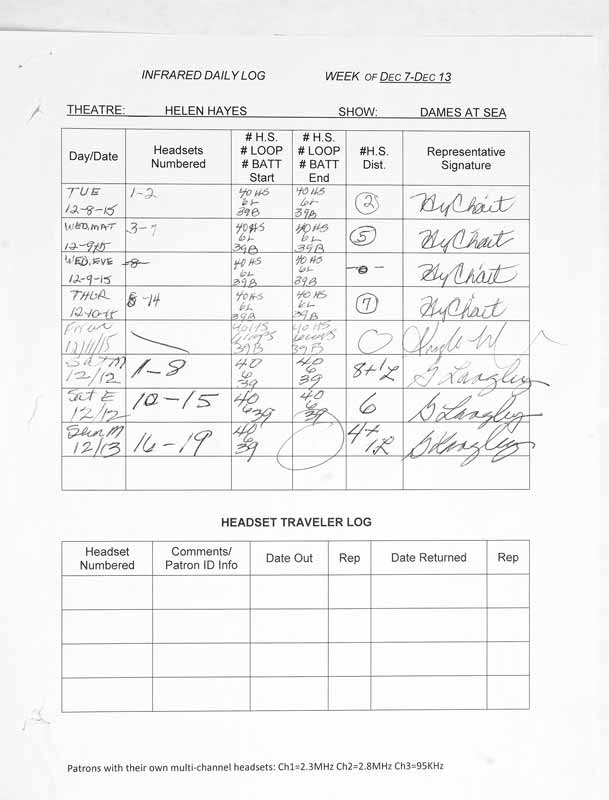 INFRARED DAILY LOG WEEK OF DEC 7-DEC 13
THEATRE: HELEN HAYES SHOW: DAMES AT SEA
Day/Date
Headsets
Numbered
# H.S.
# LOOP
# BATT
Start
# H.S.
# LOOP
# BATT
End
#H.S.
Dist.
Representative
Signature
TUE
12-8-15
1-2
40 HS
6L
39B
40 HS
6L
39B
2
WED, MAT
12-9-15
3-7
40HS
6L
39B
40HS
6L
39B
5
WED, EVE
12-9-15
-0-
40 HS
6L
39B
40 HS
6L
39B
-0-
THUR
12-10-15
8-14
40HS
6L
39B
40HS
6L
39B
7
12/11/15
40 HS
39B
40 HS
39B
0
Sat M
12/12
1-8
40
6
39
40
6
39
8+1L
G Langley
Sat E
12/12
10-15
40
6
39
40
6
39
6
G Langley
Sun M
12/13
16-19
40
6
39
4+
1L
G Langley
HEADSET TRAVELER LOG
Headset
Numbered
Comments/
Patron ID Info
Date Out
Rep
Date Returned
Rep
Patrons with their own multi-channel headsets: Ch1=2.3MHz Ch2=2.8MHz Ch3=95KHz